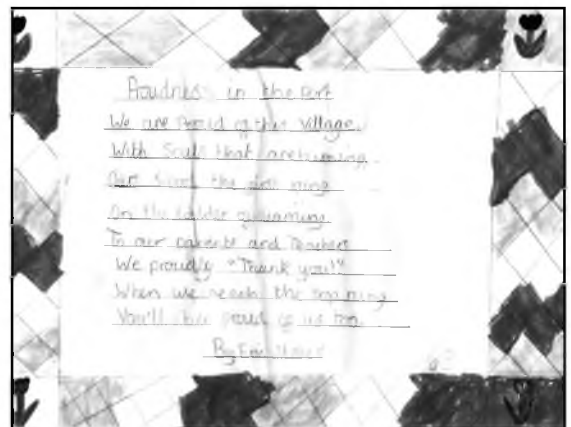 Proudness in the Port
We are Proud of this Village,
With Souls that are burning.
Our School the first rung
On the ladder of learning
To our parents and Teachers
We proudly "Thank you!"
When we reach the top rung
You'll be proud of us too.
By